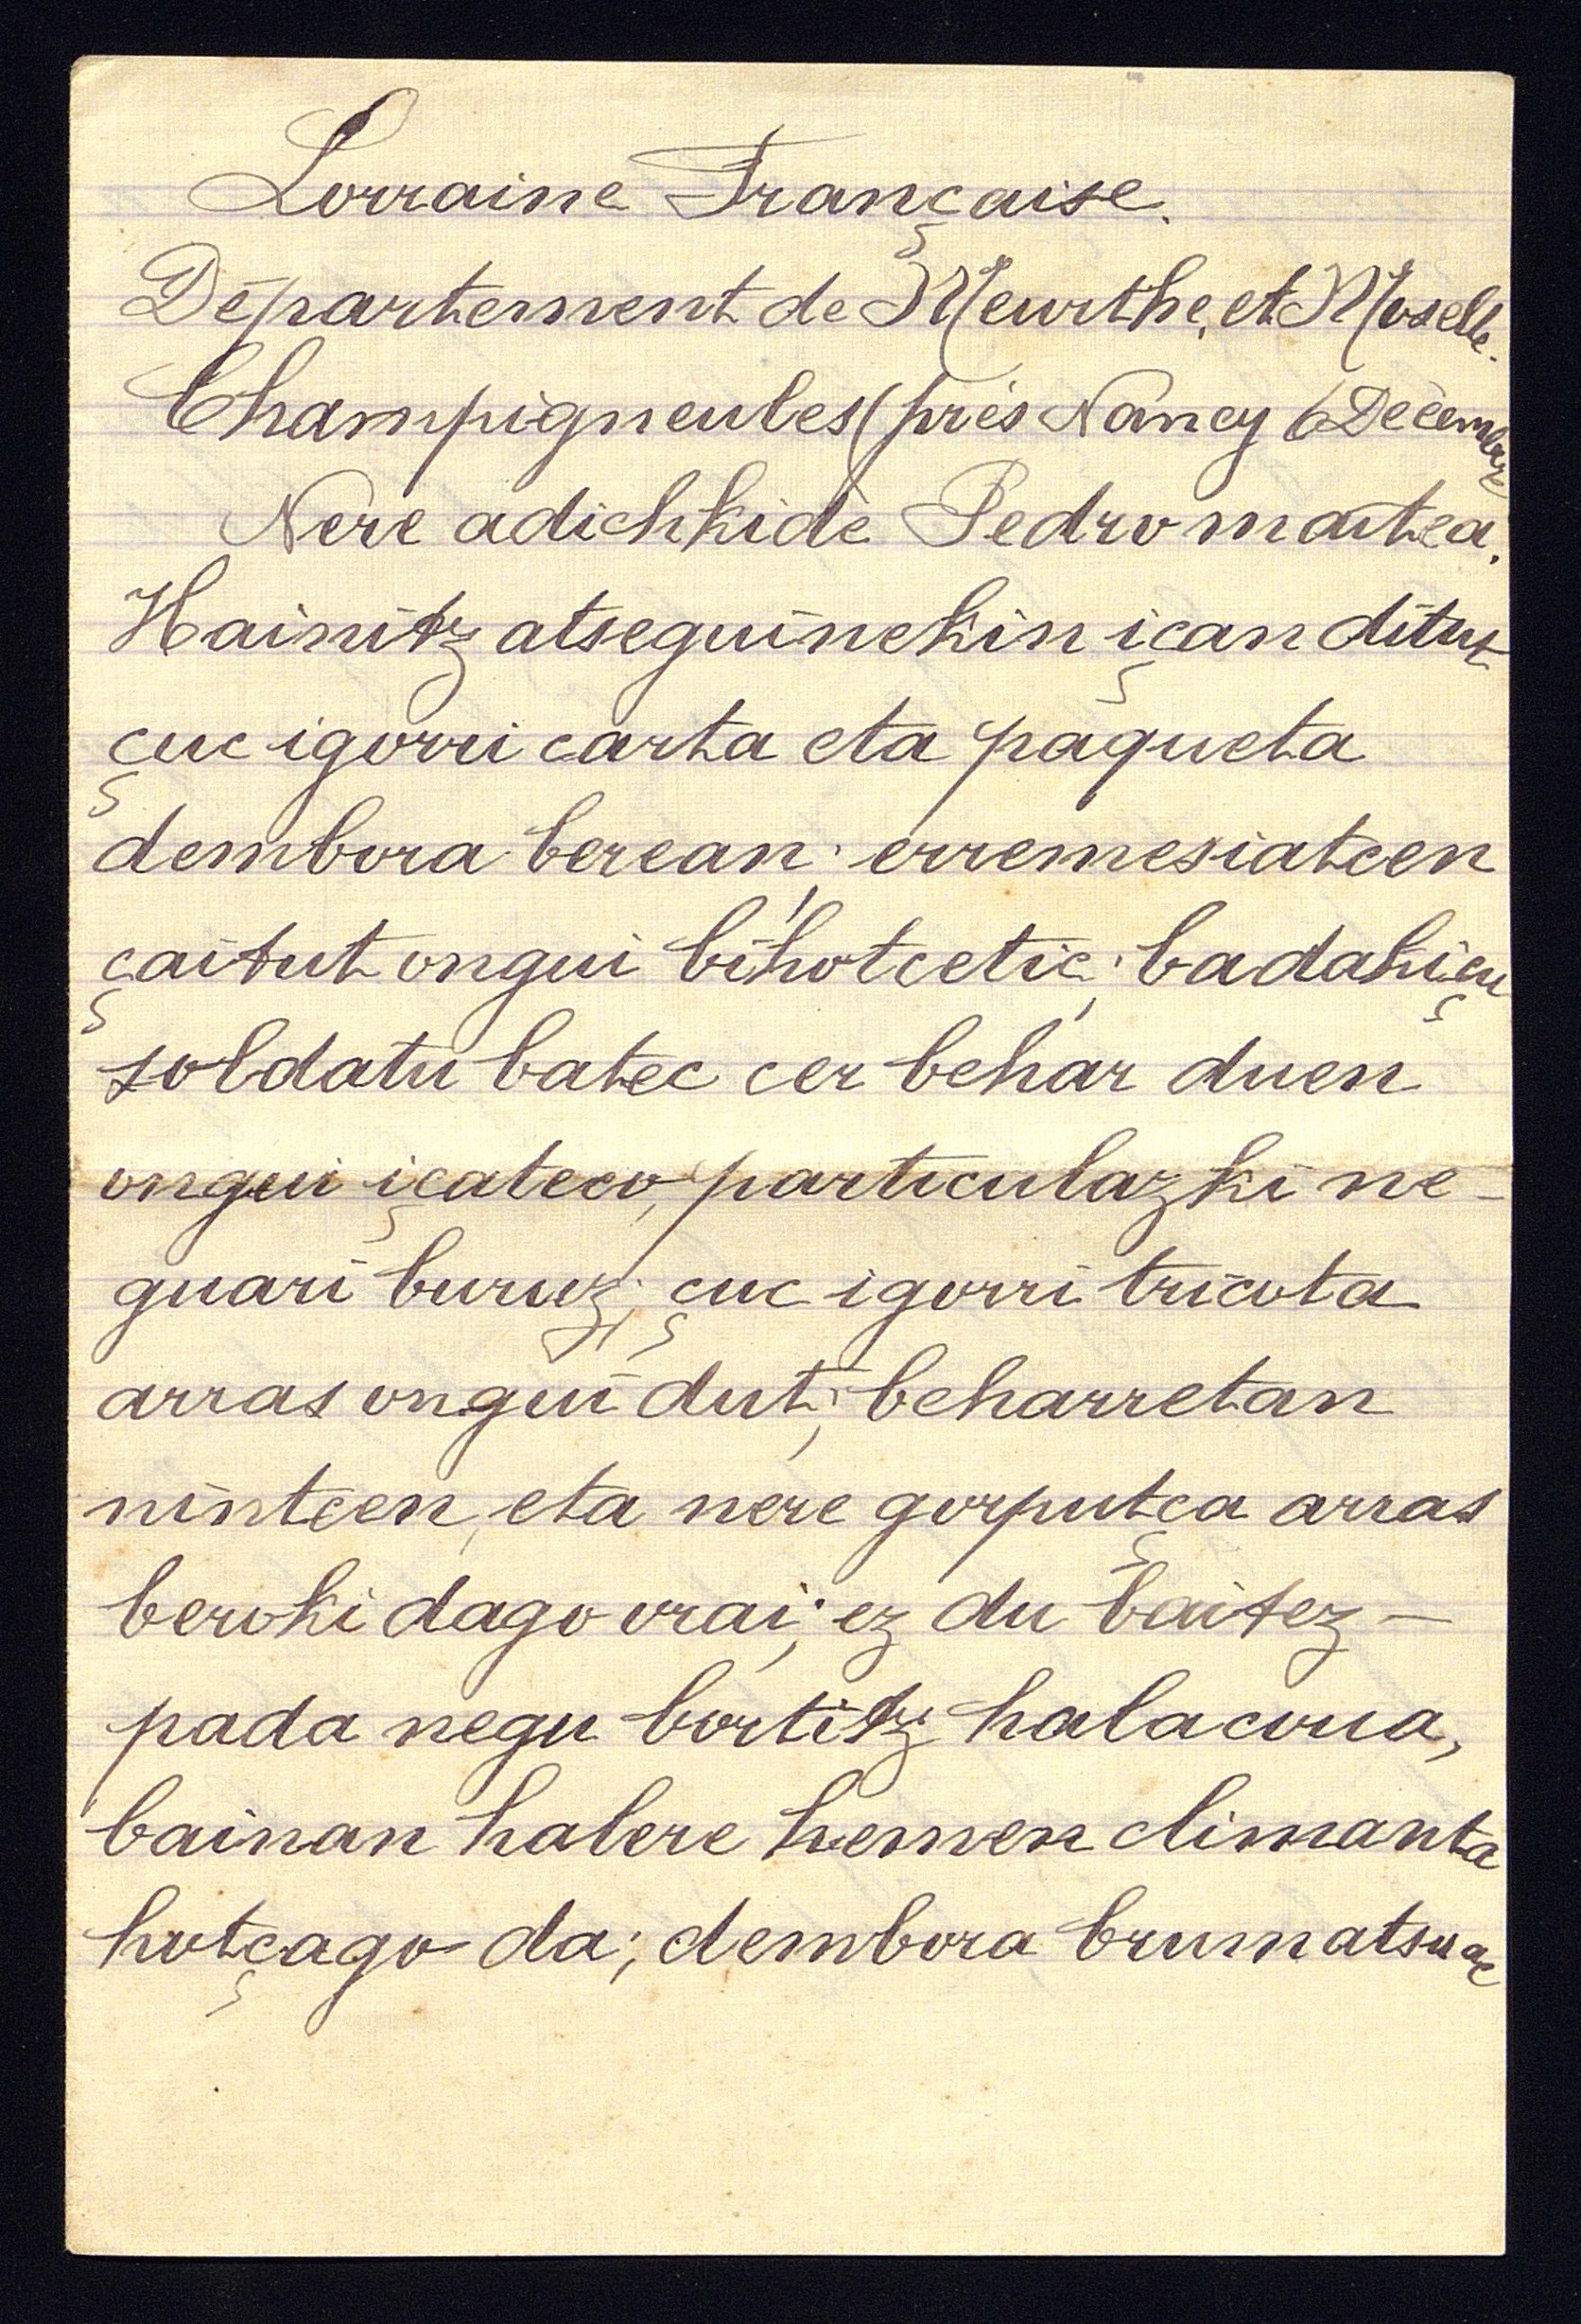 Lorraine Française.
Département de Meurthe, et Moselle.
Champigneules (près Nancy 6 Décembre
Nere adichkide Pedro maitea.
Hainitz atseguinekin içan ditut
çuc igorri carta eta paqueta
dembora berean; erremesiatcen
çaitut ongui bihotcetic; badakiçu
soldatu batec cer behar duen
ongui içateco, particulazki ne-
guari buruz; çuc igorri tricota
arras ongui dut; beharretan
nintcen, eta nere gorputça arras
beroki dago orai; ez du baitez-
pada negu bortitz halacoua,
bainan halere hemen climanta
hotçago da; dembora brumatsuac